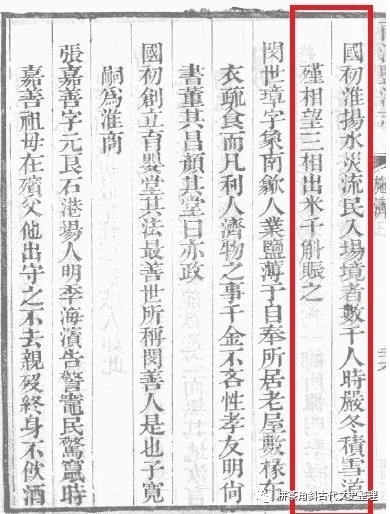 國初淮揚水災流民入場境者數千人時嚴冬積雪道
殣相望三相出米千斛賑之
閔世璋字象南歙人業鹽薄于自奉所居老屋數椽布
衣蔬食而凡利人濟物之事千金不吝性孝友明尙
書董其昌顏其堂曰亦政
國初創立育嬰堂其法最善世所稱閔善人是也子寬
嗣爲淮商
張嘉善字元良石港場人明季海濱告警竈民驚竄時
嘉善祖母在殯父他出守之不去親歿終身不飲酒
栟茶角斜古代文史整理